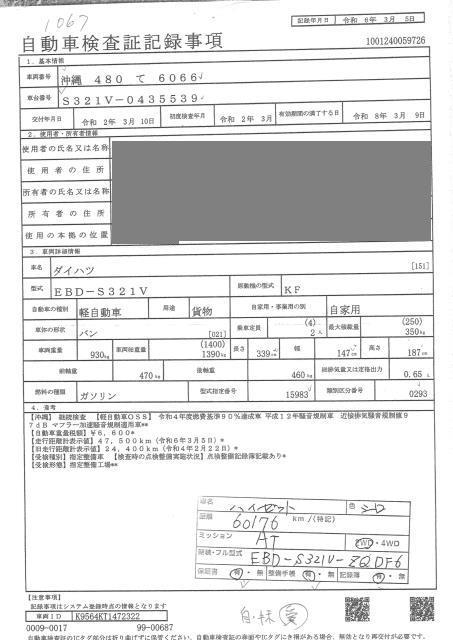 1067
記録年月日 令和 6年 3月 5日
自動車検査証記録事項
1001240059726
1. 基本情報
車両番号 沖縄 480 て 6066
車台番号 S321V-0435539
交付年月日 令和 2年 3月 10日 初度検査年月 令和 2年 3月 有効期間の満了する日 令和 8年 3月 9日
2. 使用者・所有者情報
使用者の氏名又は名称
使用者の住所
所有者の氏名又は名称
所有者の住所
使用の本拠の位置
3. 車両詳細情報
車名 ダイハツ [151]
型式 EBD-S321V 原動機の型式 KF
自動車の種別 軽自動車 用途 貨物 自家用・事業用の別 自家用
車体の形状 バン [021] 乗車定員 (4) 2人 最大積載量 (250) 350kg
車両重量 930kg 車両総重量 (1400) 1390kg 長さ 339cm 幅 147cm 高さ 187cm
前軸重 470kg 後軸重 460kg 総排気量又は定格出力 0.65 L
燃料の種類 ガソリン 型式指定番号 15983 類別区分番号 0293
4. 備考
【沖縄】 継続検査 【軽自動車OSS】 令和4年度燃費基準90%達成車 平成12年騒音規制車 近接排気騒音規制値9
7dB マフラー加速騒音規制適用車**
【自動車重量税額】 ¥6,600*
【走行距離計表示値】 47,500km (令和6年3月5日)*
【旧走行距離計表示値】 24,400km (令和4年2月22日)*
【受検種別】 指定整備車 【検査時の点検整備実施状況】 点検整備記録簿記載あり*
【受検形態】 指定整備工場**
車名 ハイゼット 色 シロ
距離 60176 km/(特記)
ミッション AT 2WD・4WD
認識・フル型式 EBD-S321V-ZQDF6
保証書 有・無 整備手帳 有・無 記録簿 有・無
【注意事項】
記録事項はシステム登録時点の情報となります
車両ID K9564KT1472322
0009-0017 99-00687
自動車検査証のICタグ部分は折り曲げずに保管ください。自動車検査証の券面やICタグに損傷がある場合、無効となり再交付が必要です。